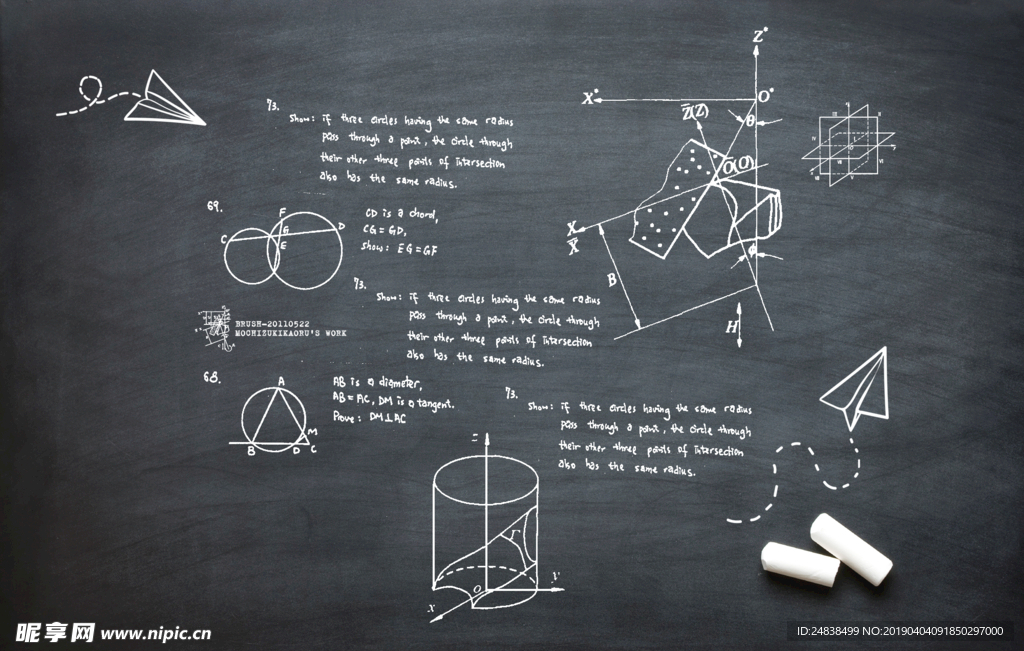 73.
Show: if three circles having the same radius
pass through a point, the circle through
their other three points of intersection
also has the same radius.
69.
F
C
G
D
E
CD is a chord,
CG = GD,
Show: EG = GF
73.
Show: if three circles having the same radius
pass through a point, the circle through
their other three points of intersection
also has the same radius.
BRUSH-20110522
MOCHIZUKIKAORU'S WORK
68.
A
M
B
D
C
AB is a diameter,
AB = AC, DM is a tangent.
Prove: DM⊥AC
73.
Show: if three circles having the same radius
pass through a point, the circle through
their other three points of intersection
also has the same radius.
Z°
X°
O°
Z̄(Z)
θ
Ō(O)
X
X̄
B
ϕ
H
Γ
O
y
x
昵享网 www.nipic.cn
ID:24838499 NO:20190404091850297000